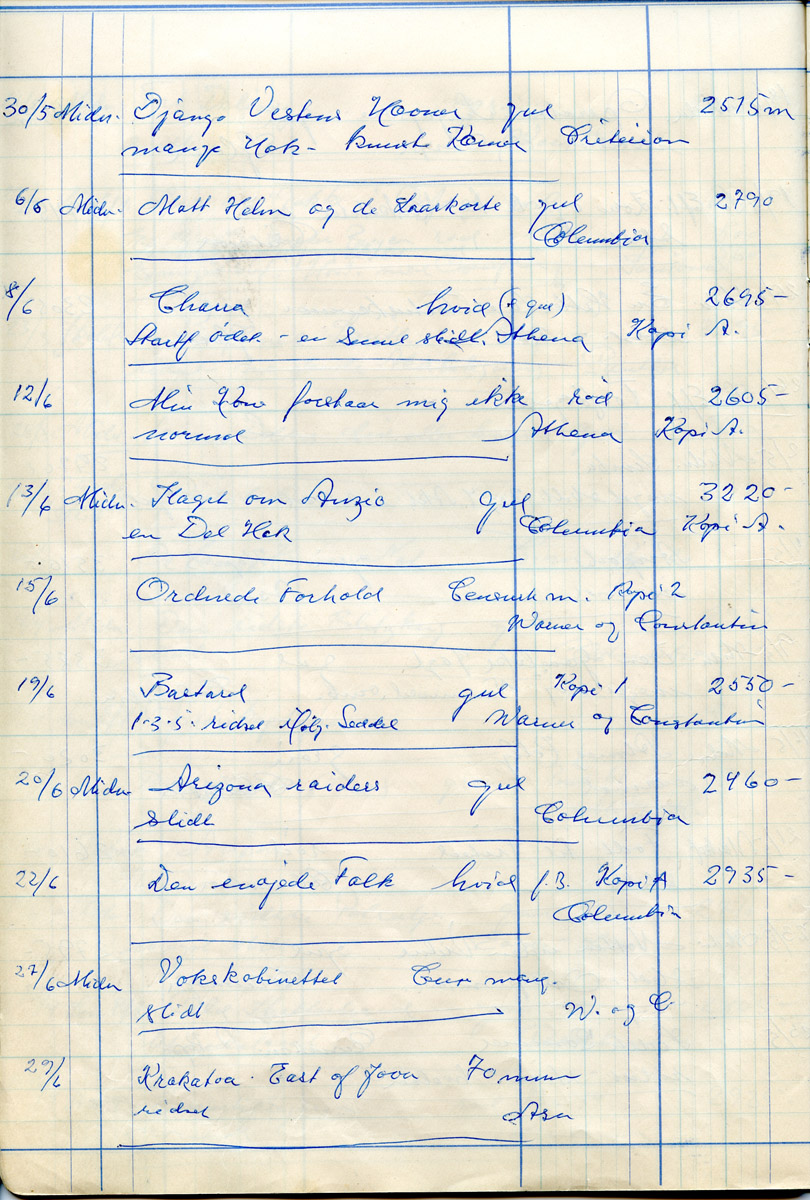 30/5 Midn. Django Vestens Hævner gul 2515m
mange Hak - Criterion
6/6 Midn. Matt Helm og de gul 2790
Columbia
8/6 Charra hvid (+ gul) 2695-
Start - en slidt. Athena Kopi A.
12/6 Min Kone forstaar mig ikke rød 2605-
normal Athena Kopi A.
13/6 Midn. Slaget om Anzio gul 3220-
en Del Hak Columbia Kopi A.
15/6 Ordnede Forhold Censurk m. Kopi 2
Warner og Constantin
19/6 Bastard gul Kopi 1 2550-
1-3-5- ridset Seddel Warner og Constantin
20/6 Midn Arizona raiders gul 2460-
Slidt Columbia
22/6 Den enøjede Falk hvid f.B. Kopi A 2935-
Columbia
27/6 Midn Vokskabinettet Cens mang.
Slidt W. og C.
29/6 Krakatoa. East of Java 70 mm
ridset Asa